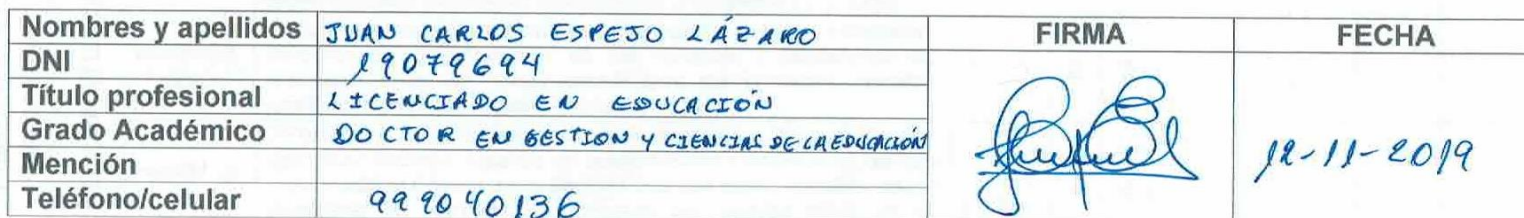 Nombres y apellidos JUAN CARLOS ESPEJO LÁZARO FIRMA FECHA
DNI 19079694
Título profesional LICENCIADO EN EDUCACIÓN
Grado Académico DOCTOR EN GESTION Y CIENCIAS DE LA EDUCACIÓN
Mención 12-11-2019
Teléfono/celular 999040136